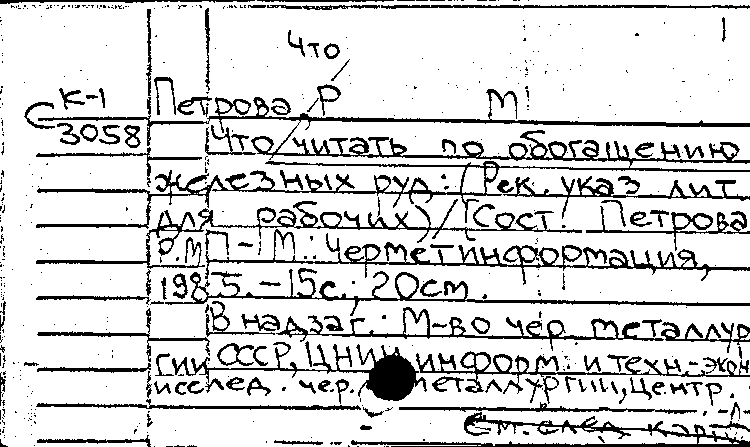 Что
К-1
С 3058
Петрова, Р М
Что читать по обогащению
железных руд: (Рек. указ лит.
для рабочих) / [Сост. Петрова
Р.М.] - М.: Черметинформация,
1985. - 15с.; 20см.
В надзаг.: М-во чер. металлур
гии СССР, ЦНИИ информ. и техн.-экон
исслед. чер. металлургии, Центр.
См. след. карт